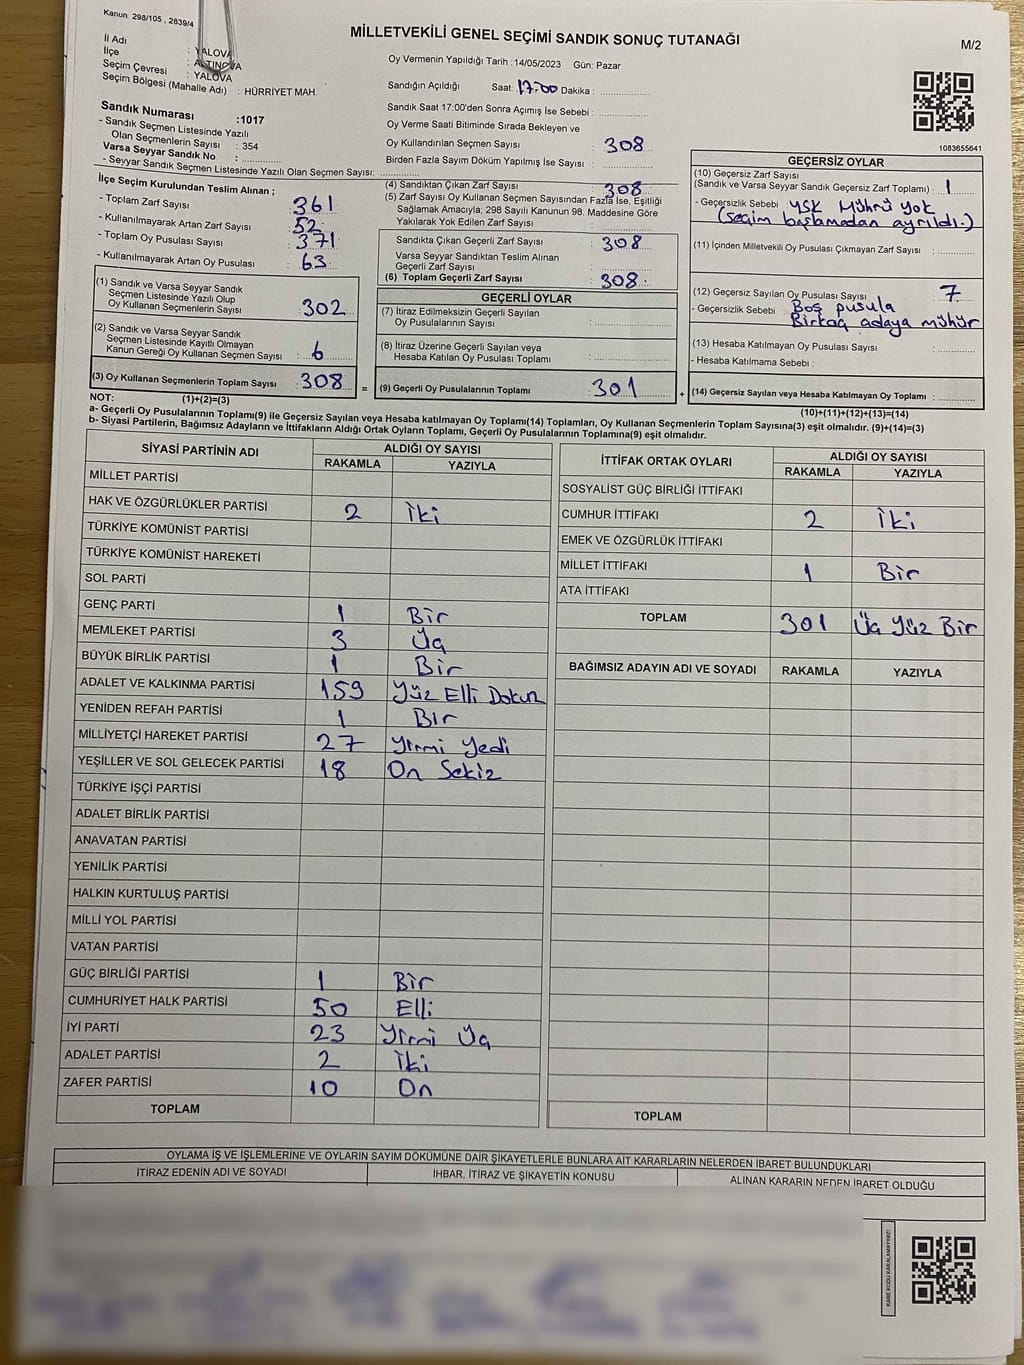 Kanun. 298/105 , 2839/4
MİLLETVEKİLİ GENEL SEÇİMİ SANDIK SONUÇ TUTANAĞI
M/2
İl Adı : YALOVA
İlçe : ALTINOVA
Seçim Çevresi : YALOVA
Seçim Bölgesi (Mahalle Adı) : HÜRRİYET MAH.
Sandık Numarası :1017
- Sandık Seçmen Listesinde Yazılı
Olan Seçmenlerin Sayısı : 354
Varsa Seyyar Sandık No :
- Seyyar Sandık Seçmen Listesinde Yazılı Olan Seçmen Sayısı:
Oy Vermenin Yapıldığı Tarih :14/05/2023 Gün: Pazar
Sandığın Açıldığı Saat: 17:00 Dakika :
Sandık Saat 17:00'den Sonra Açımış İse Sebebi :
Oy Verme Saati Bitiminde Sırada Bekleyen ve
Oy Kullandırılan Seçmen Sayısı : 308
Birden Fazla Sayım Döküm Yapılmış İse Sayısı :
1083655641
İlçe Seçim Kurulundan Teslim Alınan ;
- Toplam Zarf Sayısı : 361
- Kullanılmayarak Artan Zarf Sayısı : 52
- Toplam Oy Pusulası Sayısı : 371
- Kullanılmayarak Artan Oy Pusulası : 63
(1) Sandık ve Varsa Seyyar Sandık
Seçmen Listesinde Yazılı Olup
Oy Kullanan Seçmenlerin Sayısı : 302
(2) Sandık ve Varsa Seyyar Sandık
Seçmen Listesinde Kayıtlı Olmayan
Kanun Gereği Oy Kullanan Seçmen Sayısı : 6
(3) Oy Kullanan Seçmenlerin Toplam Sayısı : 308
(4) Sandıktan Çıkan Zarf Sayısı : 308
(5) Zarf Sayısı Oy Kullanan Seçmen Sayısından Fazla İse, Eşitliği
Sağlamak Amacıyla, 298 Sayılı Kanunun 98. Maddesine Göre
Yakılarak Yok Edilen Zarf Sayısı :
Sandıkta Çıkan Geçerli Zarf Sayısı : 308
Varsa Seyyar Sandıktan Teslim Alınan
Geçerli Zarf Sayısı :
(6) Toplam Geçerli Zarf Sayısı : 308
GEÇERLİ OYLAR
(7) İtiraz Edilmeksizin Geçerli Sayılan
Oy Pusulalarının Sayısı :
(8) İtiraz Üzerine Geçerli Sayılan veya
Hesaba Katılan Oy Pusulası Toplamı :
= (9) Geçerli Oy Pusulalarının Toplamı : 301
GEÇERSİZ OYLAR
(10) Geçersiz Zarf Sayısı
(Sandık ve Varsa Seyyar Sandık Geçersiz Zarf Toplamı) : 1
- Geçersizlik Sebebi : YSK Mührü yok
(seçim başlamadan ayrıldı.)
(11) İçinden Milletvekili Oy Pusulası Çıkmayan Zarf Sayısı :
(12) Geçersiz Sayılan Oy Pusulası Sayısı : 7
- Geçersizlik Sebebi : Boş pusula
Birkaç adaya mühür
(13) Hesaba Katılmayan Oy Pusulası Sayısı :
- Hesaba Katılmama Sebebi :
+ (14) Geçersiz Sayılan veya Hesaba Katılmayan Oy Toplamı :
NOT: (1)+(2)=(3)
(10)+(11)+(12)+(13)=(14)
a- Geçerli Oy Pusulalarının Toplamı(9) ile Geçersiz Sayılan veya Hesaba katılmayan Oy Toplamı(14) Toplamları, Oy Kullanan Seçmenlerin Toplam Sayısına(3) eşit olmalıdır. (9)+(14)=(3)
b- Siyasi Partilerin, Bağımsız Adayların ve İttifakların Aldığı Ortak Oyların Toplamı, Geçerli Oy Pusulalarının Toplamına(9) eşit olmalıdır.
SİYASİ PARTİNİN ADI ALDIĞI OY SAYISI
RAKAMLA YAZIYLA
MİLLET PARTİSİ
HAK VE ÖZGÜRLÜKLER PARTİSİ 2 İki
TÜRKİYE KOMÜNİST PARTİSİ
TÜRKİYE KOMÜNİST HAREKETİ
SOL PARTİ
GENÇ PARTİ 1 Bir
MEMLEKET PARTİSİ 3 Üç
BÜYÜK BİRLİK PARTİSİ 1 Bir
ADALET VE KALKINMA PARTİSİ 159 Yüz Elli Dokuz
YENİDEN REFAH PARTİSİ 1 Bir
MİLLİYETÇİ HAREKET PARTİSİ 27 Yirmi Yedi
YEŞİLLER VE SOL GELECEK PARTİSİ 18 On Sekiz
TÜRKİYE İŞÇİ PARTİSİ
ADALET BİRLİK PARTİSİ
ANAVATAN PARTİSİ
YENİLİK PARTİSİ
HALKIN KURTULUŞ PARTİSİ
MİLLİ YOL PARTİSİ
VATAN PARTİSİ
GÜÇ BİRLİĞİ PARTİSİ 1 Bir
CUMHURİYET HALK PARTİSİ 50 Elli
İYİ PARTİ 23 Yirmi Üç
ADALET PARTİSİ 2 İki
ZAFER PARTİSİ 10 On
TOPLAM
İTTİFAK ORTAK OYLARI ALDIĞI OY SAYISI
RAKAMLA YAZIYLA
SOSYALİST GÜÇ BİRLİĞİ İTTİFAKI
CUMHUR İTTİFAKI 2 İki
EMEK VE ÖZGÜRLÜK İTTİFAKI
MİLLET İTTİFAKI 1 Bir
ATA İTTİFAKI
TOPLAM 301 Üç Yüz Bir
BAĞIMSIZ ADAYIN ADI VE SOYADI RAKAMLA YAZIYLA
TOPLAM
OYLAMA İŞ VE İŞLEMLERİNE VE OYLARIN SAYIM DÖKÜMÜNE DAİR ŞİKAYETLERLE BUNLARA AİT KARARLARIN NELERDEN İBARET BULUNDUKLARI
İTİRAZ EDENİN ADI VE SOYADI İHBAR, İTİRAZ VE ŞİKAYETİN KONUSU ALINAN KARARIN NEDEN İBARET OLDUĞU
KARE KODU KARALAMAYINIZ!